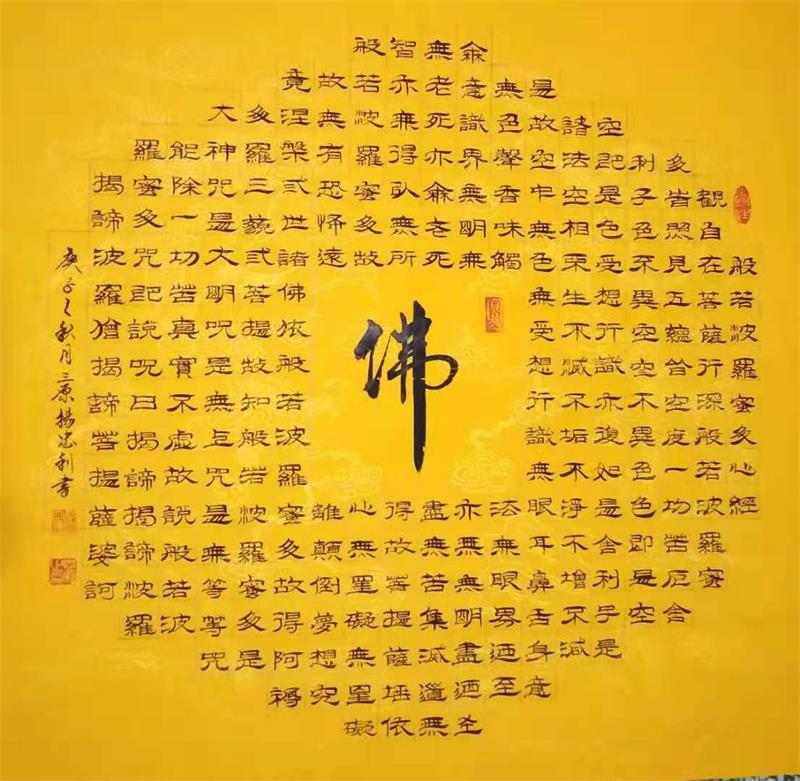 般若波羅蜜多心經
觀自在菩薩行深般若波羅蜜
多旹照見五蘊皆空度一切苦厄舍
利子色不異空空不異色色即是空
空即是色受想行識亦復如是舍利子是
諸法空相不生不滅不垢不淨不增不減
是故空中無色無受想行識無眼耳鼻舌身意
無色聲香味觸法無眼界迺至
無意識界無明無亦無無明盡迺至
無老死亦無老死盡無苦集滅道無
智亦無得以無所得故菩提薩埵依
般若波羅蜜多故心無罣礙無罣礙
故無有恐怖遠離顛倒夢想究
竟涅槃弎世諸佛依般若波羅蜜多故得阿耨
多羅三藐弎菩提故知般若波羅蜜多是
大神咒是大明咒是無上咒是無等等咒
能除一切苦真實不虛故說般若波
羅蜜多咒即說咒曰揭諦揭諦波羅
揭諦波羅僧揭諦菩提薩婆訶
佛
庚子之秋月三原楊忠利書